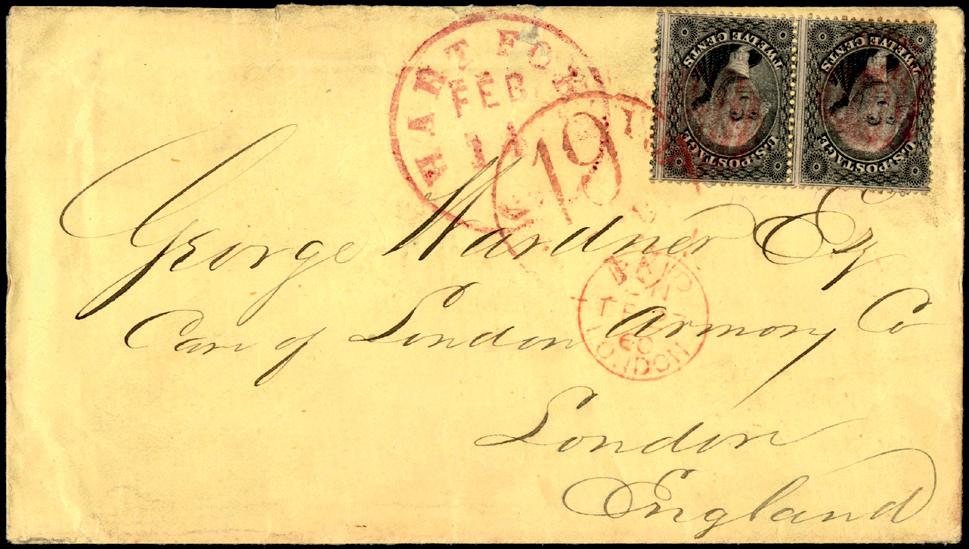 HARTFORD
FEB
14
19
U.S. POSTAGE
TWELVE CENTS
U.S. POSTAGE
TWELVE CENTS
George Wardner Esq
PAID
60
LONDON
Care of London Armory Co
London
England